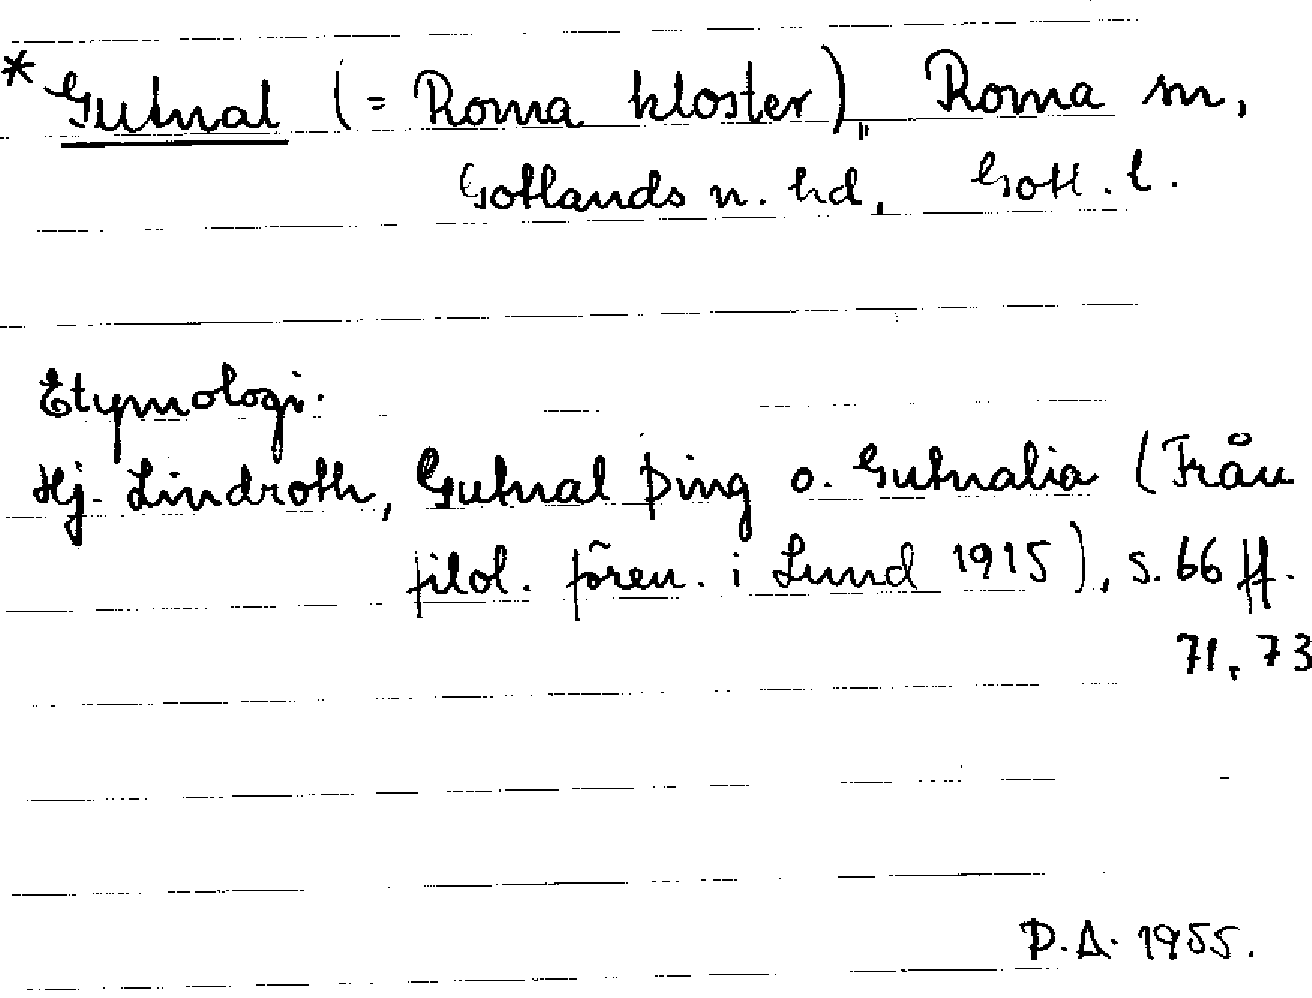 *Gutnal (= Roma kloster), Roma sn,
Gotlands n. hd, Gotl. l.
Etymologi.
Hj. Lindroth, Gutnal þing o. Gutnalia (Från
filol. fören. i Lund 1915), s. 66 ff.
71, 73
D.A. 1955.